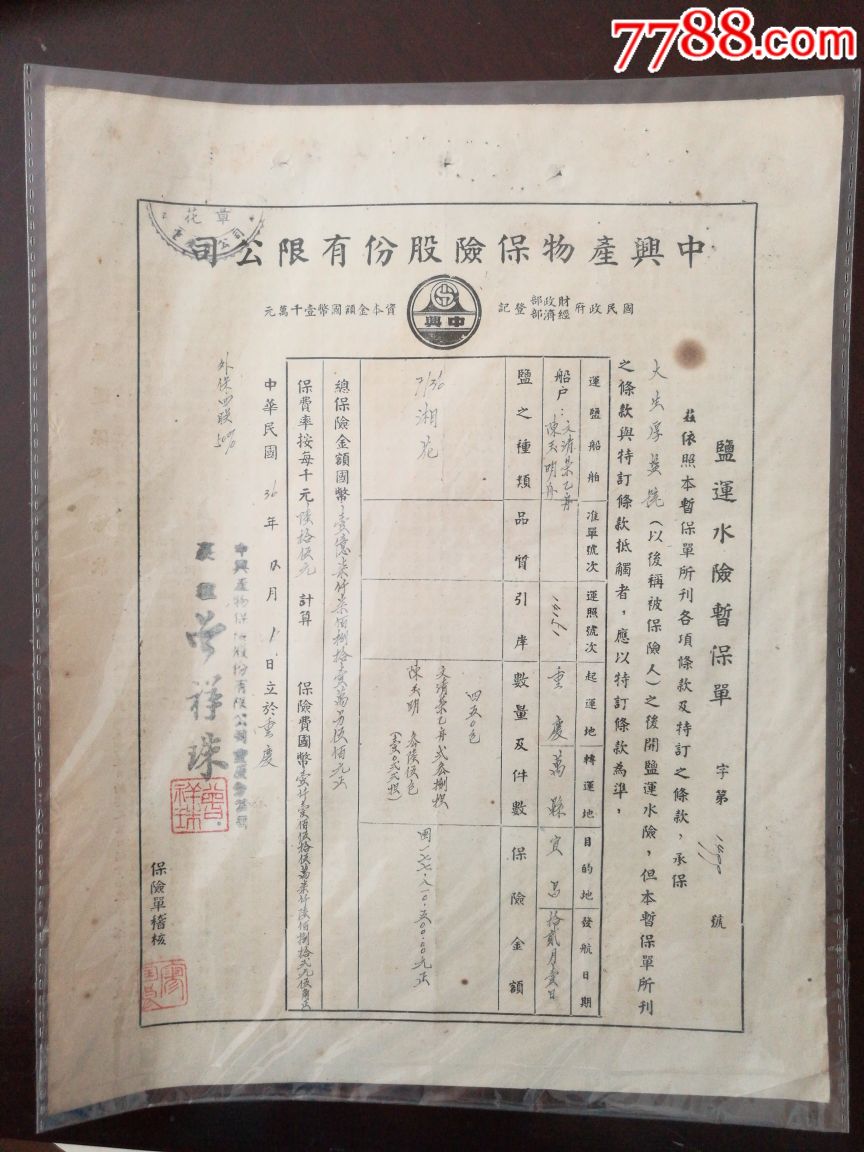 7788.com
花章
中興產物保險股份有限公司
國民政府財政部經濟部登記
中興
資本金額國幣壹千萬元
鹽運水險暫保單
字第
號
茲依照本暫保單所刊各項條款及特訂之條款,承保
大生厚鹽號(以後稱被保險人)之後開鹽運水險,但本暫保單所刊
之條款與特訂條款抵觸者,應以特訂條款為準,
運鹽船舶
准單號次
運照號次
起運地
轉運地
目的地
發航日期
船户:文清榮乙舟
陳玉明舟
重慶
萬縣
宜昌
拾貳月壹日
鹽之種類
品質
引岸
數量及件數
保險金額
7/36
湘花
四五〇包
文清榮乙舟
陳玉明
國一七七.八一〇.五〇〇.〇〇元正
總保險金額國幣壹億柒仟柒佰捌拾壹萬另伍佰元正
保費率按每千元陸拾伍元計算
保險費國幣壹仟壹佰伍拾伍萬柒仟陸佰捌拾貳元伍角正
中華民國36年12月1日立於重慶
外保西聯
50%
中興產物保險股份有限公司重慶分公司
經理
曾祥珠
曾祥珠
保險單稽核